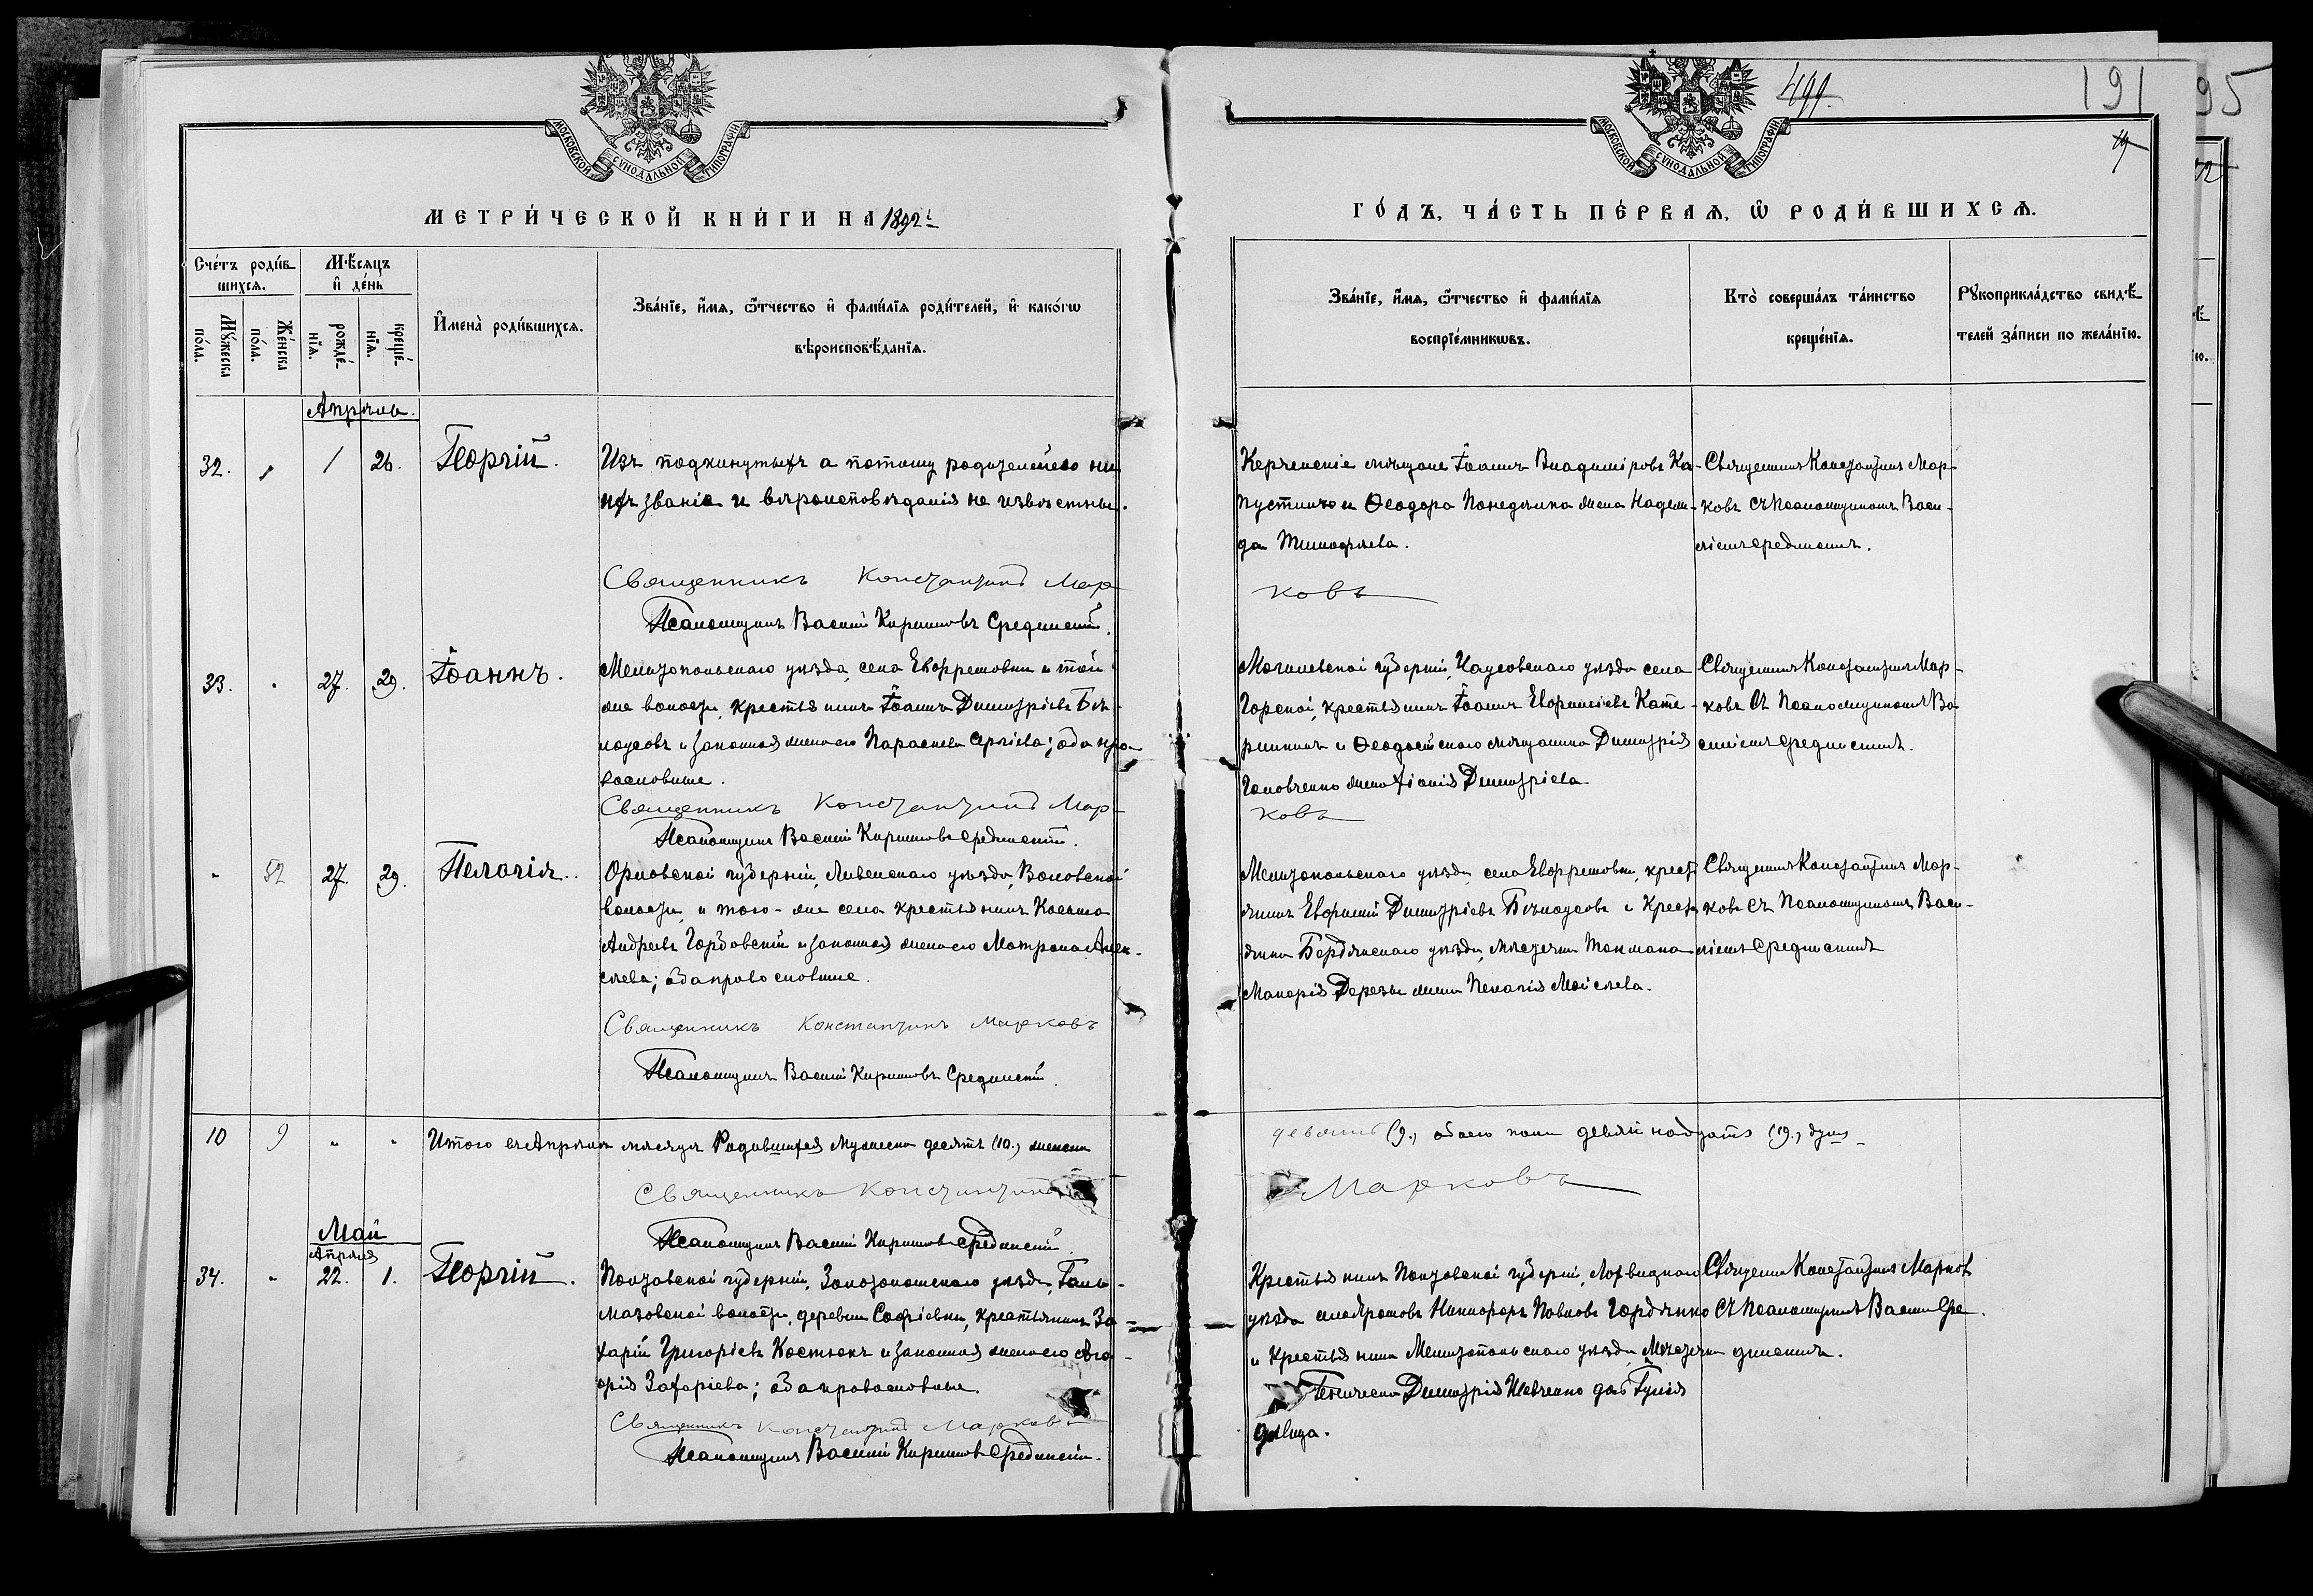 499.
191
95
19
МОСКОВСКОЙ СѴНОДАЛЬНОЙ ТИПОГРАФІИ
МОСКОВСКОЙ СѴНОДАЛЬНОЙ ТИПОГРАФІИ
МЕТРИ́ЧЕСКОЙ КНИ́ГИ НА 1892 г.
ГО́ДЪ, ЧА́СТЬ ПЕ́РВАѦ, Ѡ РОДИ́ВШИХСѦ.
Сче́тъ роди́в
шихсѧ.
Мꙋ́жеска
по́ла.
Же́нска
по́ла.
Мѣ́сѧцъ
и҆ де́нь
рожде́-
нїѧ.
креще́-
нїѧ.
И҆мена̀ роди́вшихсѧ.
Зва́нїе, и҆́мѧ, ѻ҆́тчество и҆ фами́лїѧ роди́телей, и҆ како́гѡ
вѣроисповѣ́данїѧ.
Зва́нїе, и҆́мѧ, ѻ҆́тчество и҆ фами́лїѧ
воспрїе́мникѡвъ.
Кто̀ соверша́лъ та́инство
креще́нїѧ.
Рꙋкоприкла́дство свидѣ́
телей за́писи по жела́нїю.
Апрѣль.
32. 1 26. Георгій.
Изъ подкинутыхъ а потому родители его ни
ихъ званіе и вѣроисповѣданія не извѣстны.
Священникъ Константинъ Мар-
ковъ
Псаломщикъ Василій Кириловъ Срединскій.
Керченскіе мѣщане Іоаннъ Владиміровъ Ка-
пустинъ и Ѳеодора Понедѣлка жена Надеж-
да Тимофѣева.
Священникъ Константинъ Мар-
ковъ съ Псаломщикомъ Васи-
ліемъ Срединскимъ.
33. 27. 29. Іоаннъ.
Мелитопольскаго уѣзда, села Ефремовки и той
же волости, крестьянинъ Іоаннъ Димитріевъ Бѣ-
лоусовъ и законная жена его Параскева Сергіева; оба пра-
вославные.
Священникъ Константинъ Мар-
ковъ
Псаломщикъ Василій Кириловъ Срединскій.
Могилевской губерніи, Чаусовскаго уѣзда села
Горской, крестьянинъ Іоаннъ Ефимовъ Кате-
риничъ и Ѳеодосійскаго мѣщанина Димитрія
Головченко жена Димитріева
Священникъ Константинъ Мар-
ковъ съ Псаломщикомъ Ва-
силіемъ Срединскимъ.
52 27. 29. Пелагія.
Орловской губерніи, Ливенскаго уѣзда, Воловской
волости и того-же села крестьянинъ Косьма
Андреевъ Гордовскій и законная жена его Матрона Алек-
сѣева; оба православные.
Священникъ Константинъ Марковъ
Псаломщикъ Василій Кириловъ Срединскій.
Мелитопольскаго уѣзда, села Ефремовки, кресть-
янинъ Ефимій Димитріевъ Бѣлоусовъ и Кресть-
янина Бердянскаго уѣзда, мѣстечка Токмака
Макарія Дерезы жена Пелагія Моисѣева.
Священникъ Константинъ Мар-
ковъ съ Псаломщикомъ Васи-
ліемъ Срединскимъ
10 9 Итого въ Апрѣлѣ мѣсяцѣ Родившихся мужеска десять (10.) женска
девять (9.), обоего пола девятнадцать (19.), душъ
Священникъ Константинъ
Марковъ
Псаломщикъ Василій Кириловъ Срединскій.
Май
Апрѣля
34. 22. 1. Георгій.
Полтавской губерніи, Золотоношскаго уѣзда, Гель-
мазовской волости, деревни Софіевки, крестьянинъ За-
харій Григоріевъ Костюкъ и законная жена его
Захаріева; оба православные.
Священникъ Константинъ Марковъ
Псаломщикъ Василій Кириловъ Срединскій.
Крестьянинъ Полтавской губерніи, Лохвицкаго
уѣзда Никифоръ Павловъ Гордѣнко
и Крестьянина Мелитопольскаго уѣзда Мѣстечка
Геническа Димитрія Шевченко дочь
дѣвица.
Священникъ Константинъ Марковъ
съ Псаломщикомъ Василіемъ Сре-
динскимъ.